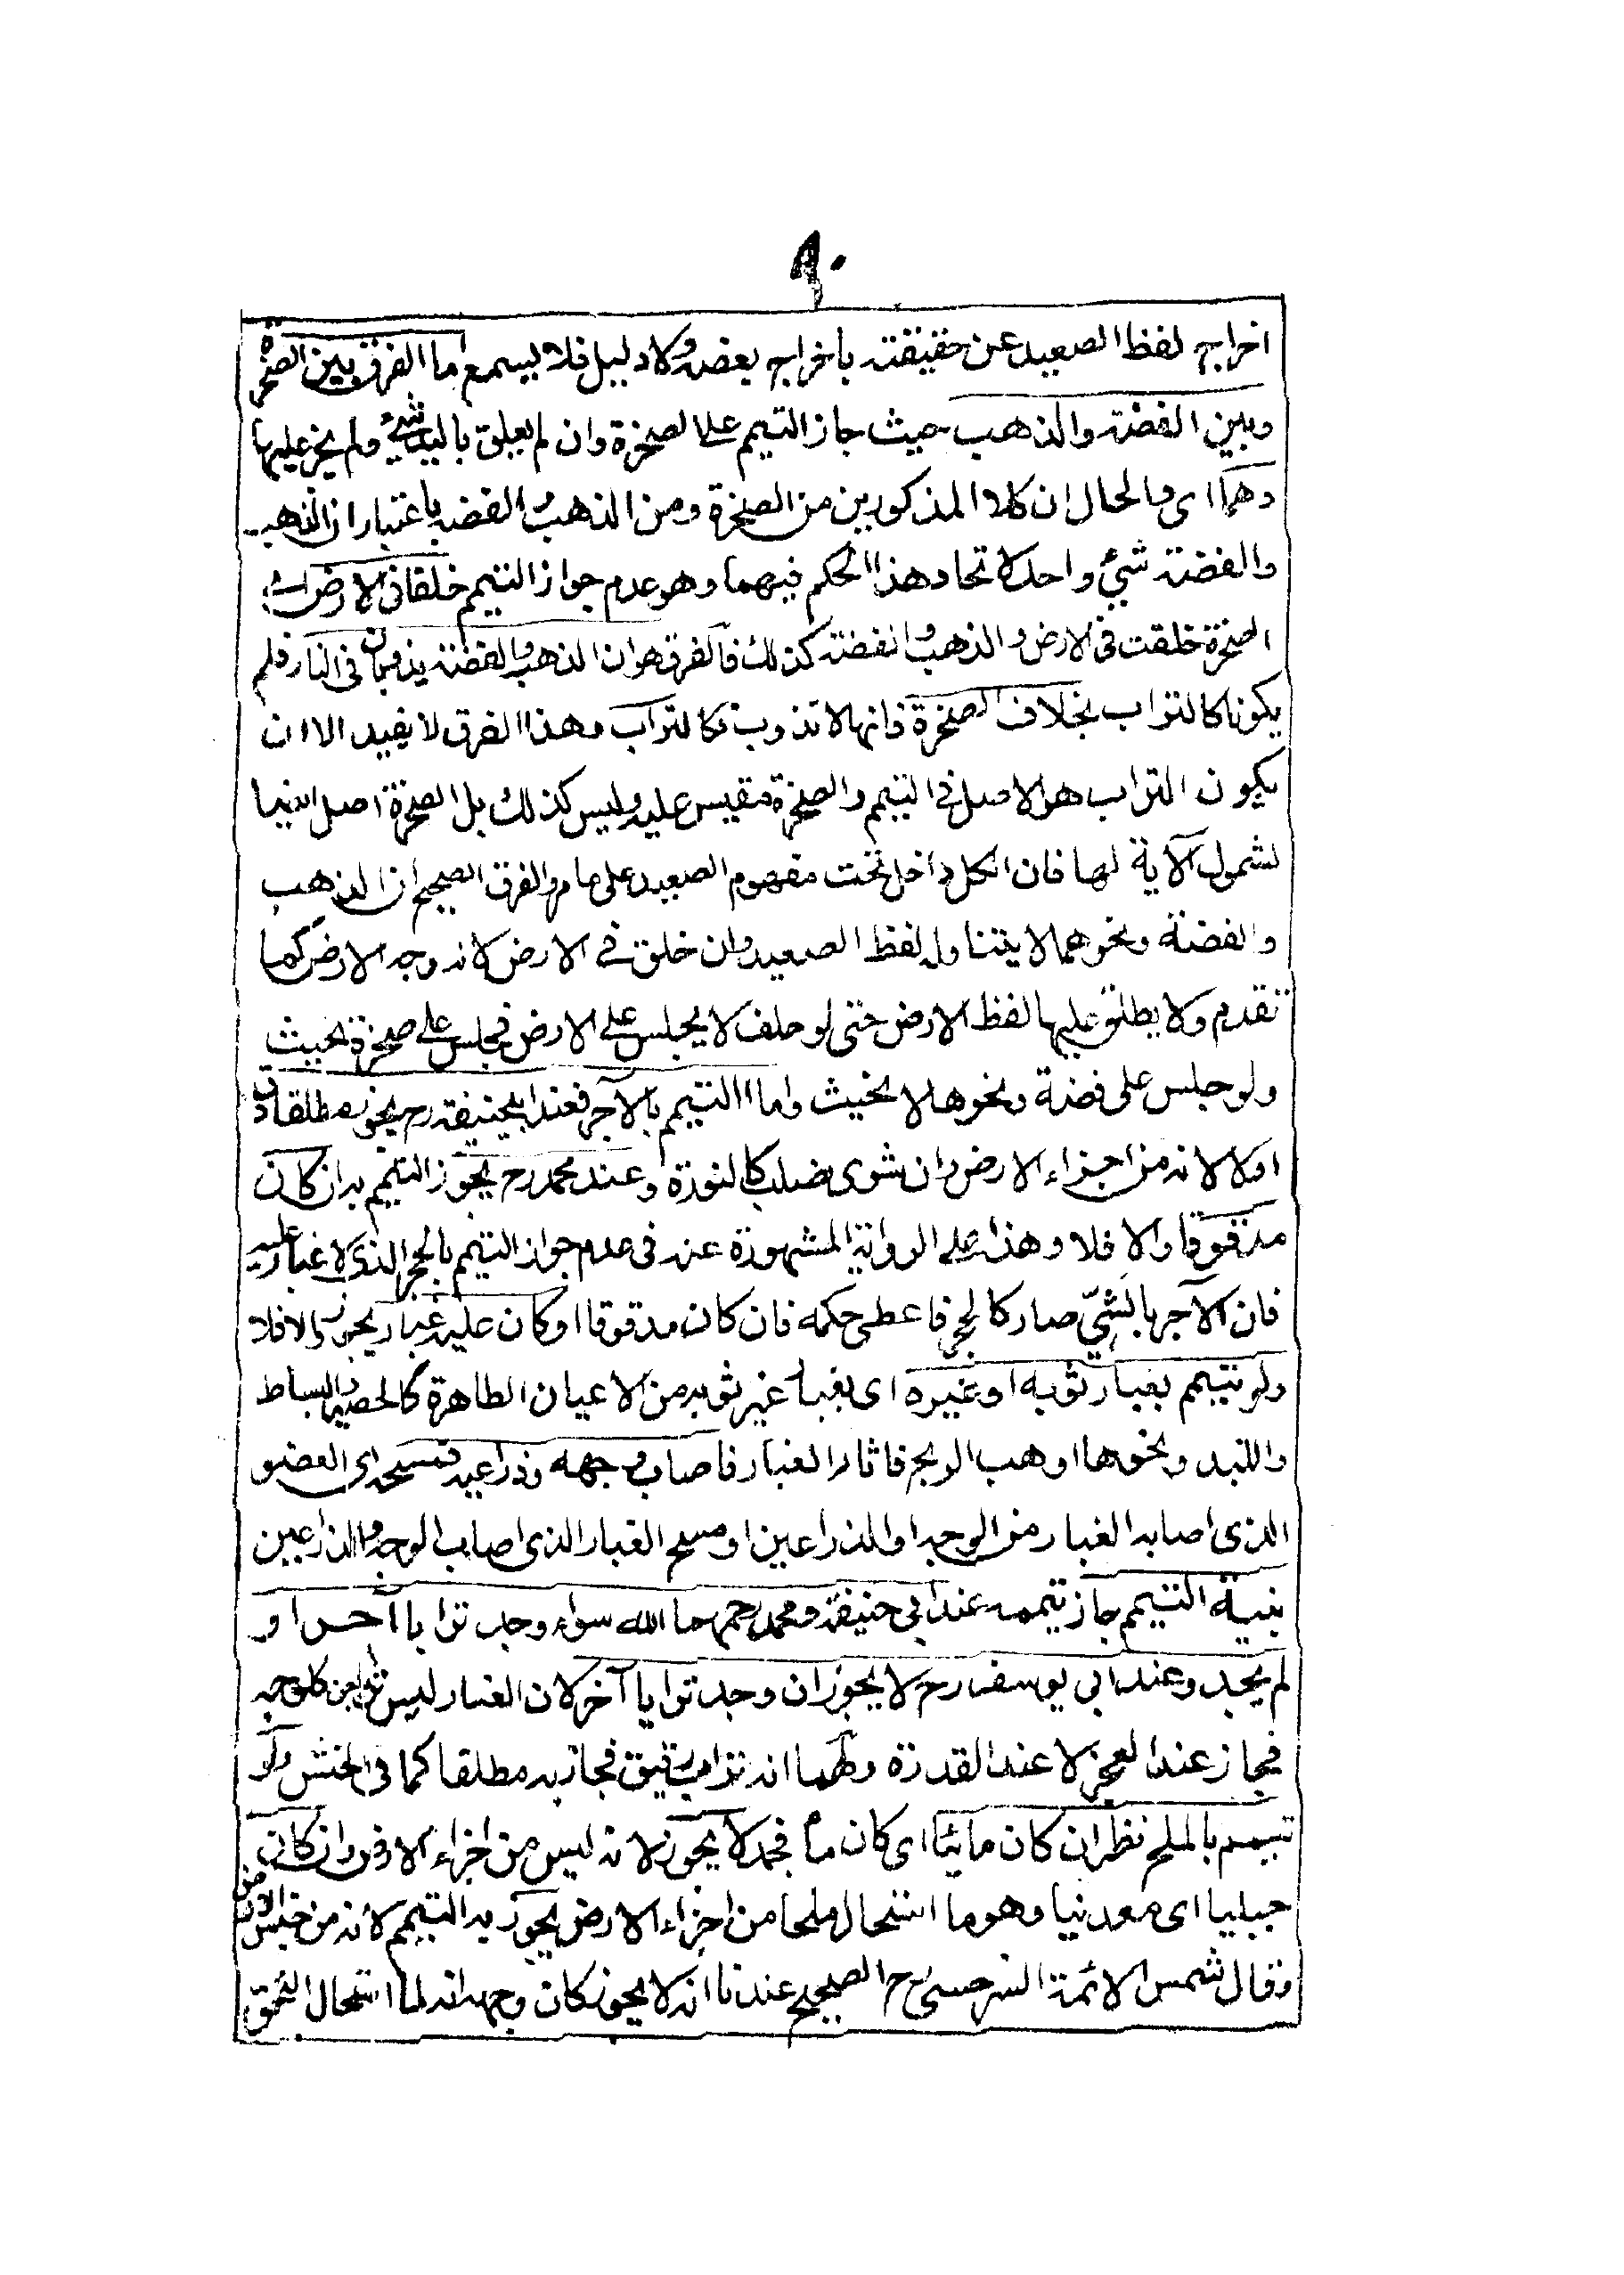 ٩٠
اخراج لفظ الصعيد عن حقيقته باخراج بعضه ولا دليل فلا يسمع اما الفرق بين الصخرة
وبين الفضة والذهب حيث جاز التيمم على الصخرة وان لم يعلق باليد شيء ولم يجز عليهما
وهما اى والحال ان كلا المذكورين من الصخرة ومن الذهب والفضة باعتبار ان الذهب
والفضة شيء واحد لاتحاد هذا الحكم فيهما وهو عدم جواز التيمم خلقا فى الارض
الصخرة خلقت فى الارض والذهب والفضة كذلك فالفرق هو ان الذهب والفضة يذوبان فى النار فلم
يكونا كالتراب بخلاف الصخرة فانها لا تذوب كالتراب وهذا الفرق لا يفيد الا ان
يكون التراب هو الاصل فى التيمم والصخرة مقيس عليه وليس كذلك بل الصخرة اصل ايضا
لشمول الآية لها فان الكل داخل تحت مفهوم الصعيد على ما مر والفرق الصحيح ان الذهب
والفضة ونحوهما لا يتناوله لفظ الصعيد وان خلق فى الارض لانه وجه الارض كما
تقدم ولا يطلق عليها لفظ الارض حتى لو حلف لا يجلس على الارض فجلس على صخرة يحنث
ولو جلس على فضة ونحوها لا يحنث واما التيمم بالآجر فعند ابيحنيفة رح يجوز مطلقا دق
اولا لانه من اجزاء الارض وان شوى فصلب كالنورة وعند محمد رح يجوز التيمم به ان كان
مدقوقا والا فلا وهذا على الرواية المشهورة عنه فى عدم جواز التيمم بالحجر الذى لا غبار عليه
فان الآجر بالشيّ صار كالحجر فاعطى حكمه فان كان مدقوقا او كان عليه غبار يجوز والا فلا
ولو تيمم بغبار ثوبه او غيره اى بغبار غير ثوبه من الاعيان الطاهرة كالحصير والبساط
واللبد ونحوها او هب الريح فاثار الغبار فاصاب وجهه وذراعيه فمسحه اى العضو
الذى اصابه الغبار من الوجه او الذراعين او مسح الغبار الذى اصاب الوجه والذراعين
بنية التيمم جاز تيممه عند ابي حنيفة ومحمد رحمهما الله سواء وجد ترابا آخر او
لم يجد وعند ابي يوسف رح لا يجوز ان وجد ترابا آخر لان الغبار ليس ترابا من كل وجه
فجاز عند العجز لا عند القدرة ولهما انه تراب رقيق فجاز به مطلقا كما فى الخشن ولو
تيمم بالملح نظر ان كان مائيا اى كان ماء فجمد لا يجوز لانه ليس من اجزاء الارض وان كان
جبليا اى معدنيا وهو ما استحال ملحا من اجزاء الارض يجوز به التيمم لانه من جنس الارض
وقال شمس الائمة السرخسى رح الصحيح عندنا انه لا يجوز كان وجهه انه لما استحال التحق